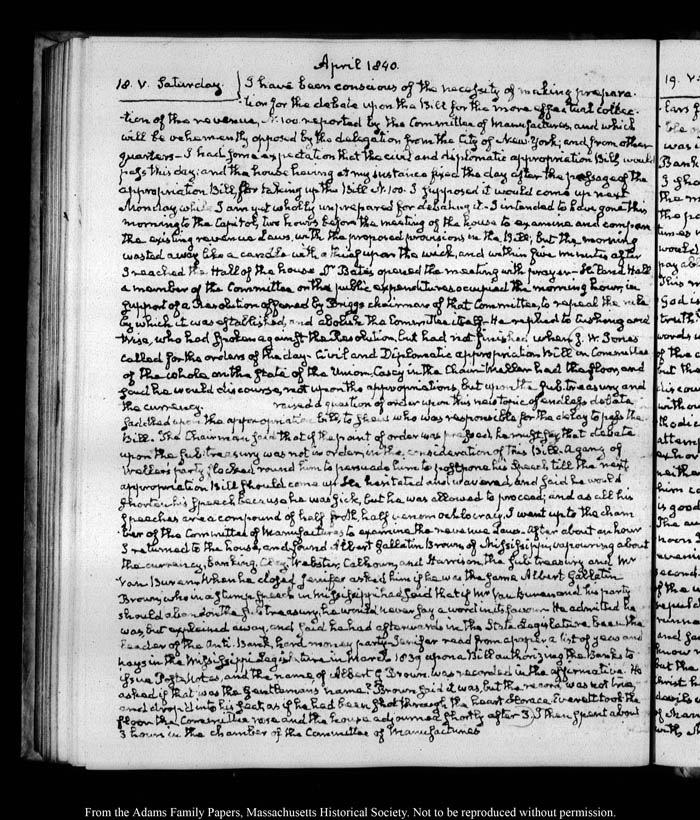 April 1840.
18. V. Saturday. I have been conscious of the necessity of making prepara-
tion for the debate upon the Bill for the more effectual collec-
-tion of the revenue, N. 100 reported by the Committee of Manufactures, and which
will be vehemently opposed by the delegation from the City of New York, and from other
quarters - I had some expectation that the civil and diplomatic appropriation Bill would
pass this day; and the house having at my instance fixed the day after the passage of the
appropriation Bill, for taking up the Bill N. 100. I supposed it would come up next
Monday, while I am yet wholly unprepared for debating it - I intended to have gone this
morning to the Capitol, two hours before the meeting of the house to examine and compare
the existing revenue Laws, with the proposed provisions in the Bill; but the morning
wasted away like a candle with a thief upon the wick, and within five minutes after
I reached the Hall of the house Mr Bates opened the meeting with prayer - Hall
a member of the Committee on the public expenditures occupied the morning hour, in
support of a Resolution offered by Briggs chairman of that Committee, to repeal the rule
by which it was established, and abolish the Committee itself - He replied to Cushing and
Wise, who had spoken against the Resolution, but had not finished when J. W. Jones
called for the orders of the day - Civil and Diplomatic appropriation Bill in Committee
of the whole on the State of the Union. Casey in the Chair Weller had the floor, and
said he would discourse, not upon the appropriations, but upon the sub-treasury and
the currency. raised a question of order upon this new topic of endless debate
saddled upon the appropriation bill, to shew who was responsible for the delay to pass the
Bill. The Chairman said that if the point of order was pressed he must say that debate
upon the Sub. treasury was not in order in the consideration of this Bill. A gang of
Weller's party flocked round him to persuade him to postpone his speech till the next
appropriation Bill should come up. He hesitated and wavered, and said he would
shorten his Speech because he was sick, but he was allowed to proceed; and as all his
Speeches are a compound of half froth, half venom ochlocracy, I went up to the cham-
ber of the Committee of Manufactures to examine the revenue Laws. After about an hour
I returned to the house, and found Albert Gallatin Brown, of Mississippi, vapouring about
the currency, banking, Clay, Webster, Calhoun, and Harrison, the sub treasury and Mr
Van Buren. When he closed Jenifer asked him if he was the same Albert Gallatin
Brown, who in a stump speech in Mississippi had said that if Mr Van Buren and his party
should abandon the sub treasury, he would never say a word in its favour. He admitted he
was but explained away, and said he had afterwards in the State Legislature been the
Leader of the Anti. Bank, hard money party. Jenifer read from a paper a list of yeas and
nays in the Mississippi Legislature in March 1839 upon a Bill authorizing the Banks to
issue Post Notes, and the name of Albert G Brown was recorded in the affirmative. He
asked if that was the Gentleman's name? Brown said it was, but the record was not true,
and drop'd into his seat as if he had been shot through the heart. Horace Everett took the
floor. the Committee rose and the house adjourned shortly after 3. I then spent about
3 hours in the chamber of the Committee of Manufactures
19. V.
From the Adams Family Papers, Massachusetts Historical Society. Not to be reproduced without permission.